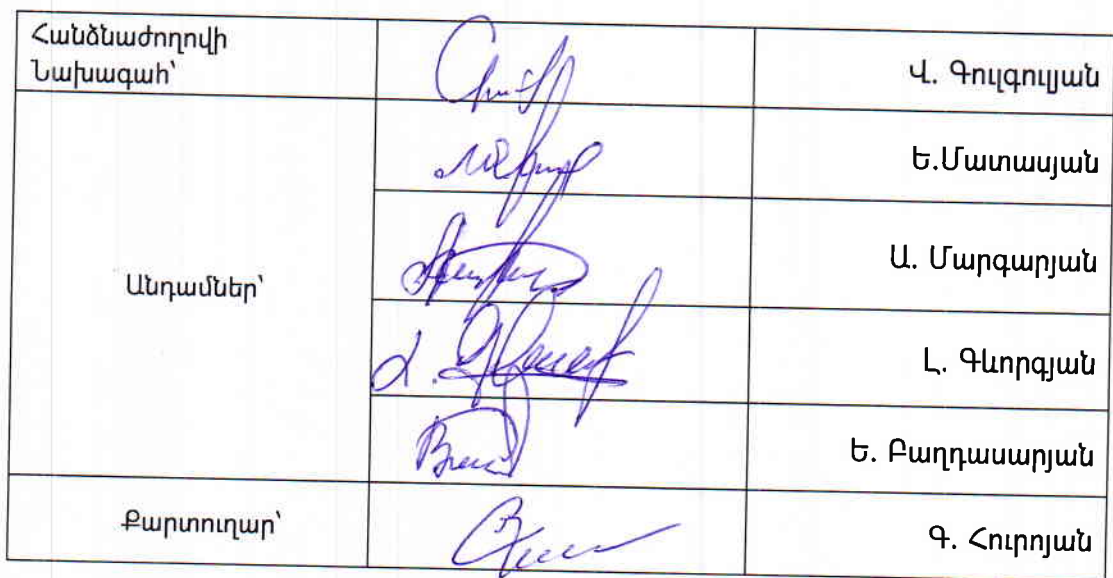 Հանձնաժողովի
Նախագահ՝
Վ. Գուլգուլյան
Ե.Մատասյան
Անդամներ՝
Ա. Մարգարյան
Լ. Գևորգյան
Ե. Բաղդասարյան
Քարտուղար՝
Գ. Հուրոյան